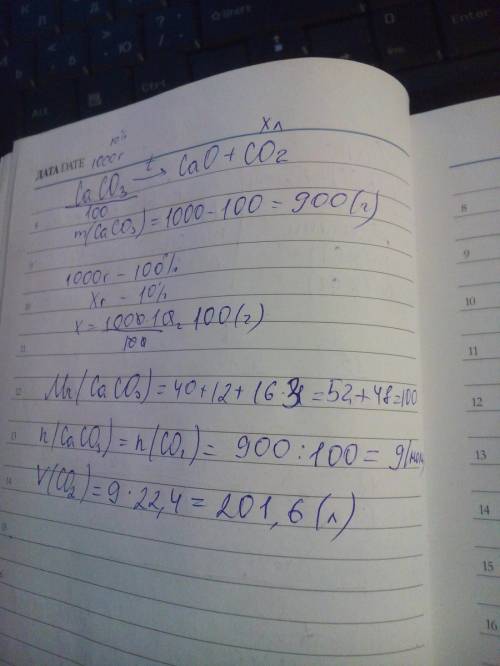 ДАТА DATE 1000г 10% Xл
CaCO₃ t→ CaO + CO₂
100
m(CaCO₃) = 1000 - 100 = 900 (г)
1000г - 100%
Xг - 10%
X = 1000·10 / 100 = 100 (г)
Mr(CaCO₃) = 40 + 12 + 16·3 = 52 + 48 = 100
n(CaCO₃) = n(CO₂) = 900 : 100 = 9 (мол
V(CO₂) = 9 · 22,4 = 201,6 (л)
8
9
10
11
12
13
14
15
8
9
10
11
12
13
14
15
16
Shift
Enter
Alt
Ctrl